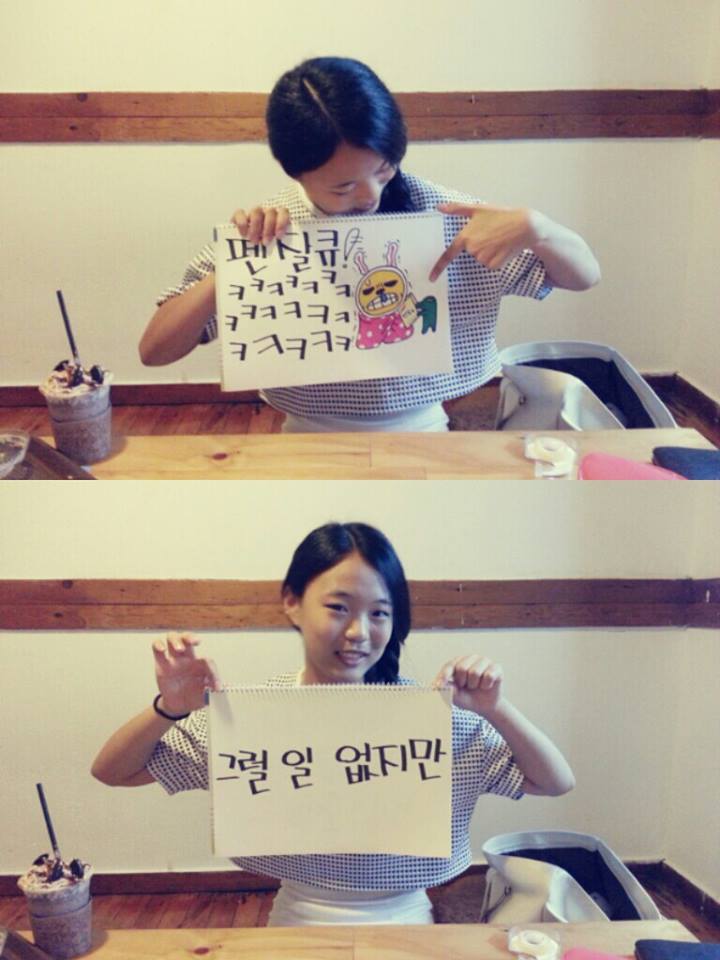 펜잘큐!
ㅋㅋㅋㅋㅋ
ㅋㅋㅋㅋㅋ
ㅋㅋㅋㅋㅋ
그럴 일 없지만